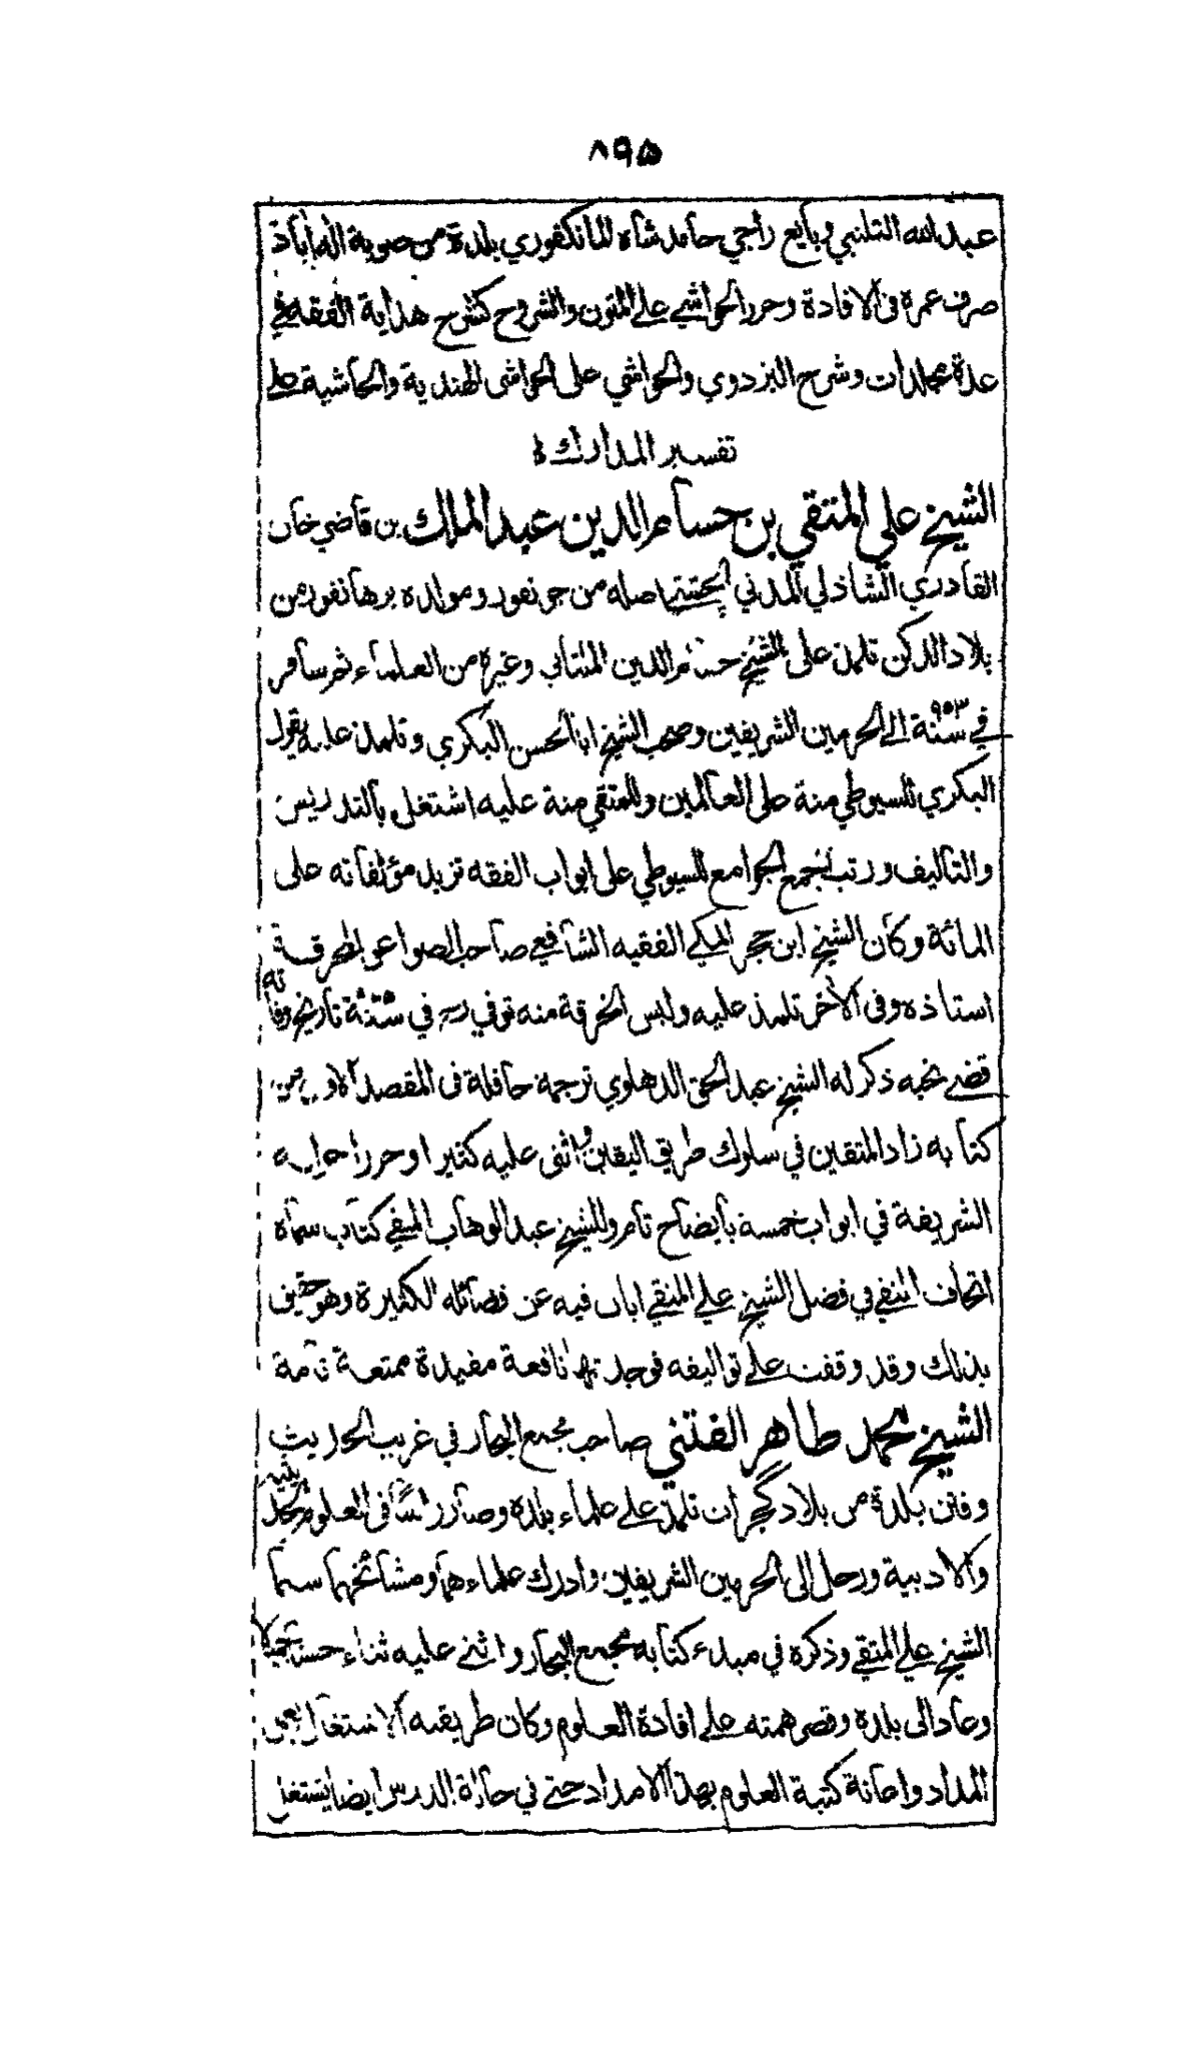 ٨٩٥
عبد الله التلنبي وبايع راجي حامد شاه المانكفوري بلدة من صوبة اله اباد
صرف عمره في الافادة وحرر الحواشي على المتون والشروح كشرح هداية الفقه في
عدة مجلدات وشرح البزدوي والحواشي على الحواشي الهندية والحاشية على
تفسير المدارك
الشيخ علي المتقي بن حسام الدين عبد الملك بن قاضي خان
القادري الشاذلي المدني الچشتي اصله من جونفور ومولده برهانفور من
بلاد الدكن تلمذ على الشيخ حسام الدين الملتاني وغيره من العلماء ثم سافر
في سنة ٩٥٣ الى الحرمين الشريفين وصحب الشيخ ابا الحسن البكري وتلمذ عليه يقول
البكري للسيوطي منة على العالمين وللمتقي منة عليه اشتغل بالتدريس
والتاليف ورتب جمع الجوامع للسيوطي على ابواب الفقه تزيد مؤلفاته على
المائة وكان الشيخ ابن حجر المكي الفقيه الشافعي صاحب الصواعق المحرقة
استاذه وفي الاخر تلمذ عليه ولبس الخرقة منه توفي رح في سنة تاريخ وفاته
قضى نحبه ذكر له الشيخ عبد الحق الدهلوي ترجمة حافلة في المقصد الاول من
كتابه زاد المتقين في سلوك طريق اليقين واثنى عليه كثيرا وحرر احواله
الشريفة في ابواب خمسة بايضاح تام وللشيخ عبد الوهاب المتقي كتاب سماه
اتحاف التقي في فضل الشيخ علي المتقي ابان فيه عن فضائله الكثيرة وهو حقيق
بذلك وقد وقفت على تواليفه فوجدتها نافعة مفيدة ممتعة تامة
الشيخ محمد طاهر الفتني صاحب مجمع البحار في غريب الحديث
وفتن بلدة من بلاد گجرات تلمذ على علماء بلده وصار راسا في العلوم الحديثية
والادبية ورحل الى الحرمين الشريفين وادرك علماءهما ومشائخهما سيما
الشيخ علي المتقي وذكره في مبدء كتابه مجمع البحار واثنى عليه ثناء حسنا جميلا
وعاد الى بلده وقصر همته على افادة العلوم وكان طريقه الاشتغال بعمل
المداد واعانة كتبة العلوم بهذا الامداد حتى في حالة الدرس ايضا يشتغل